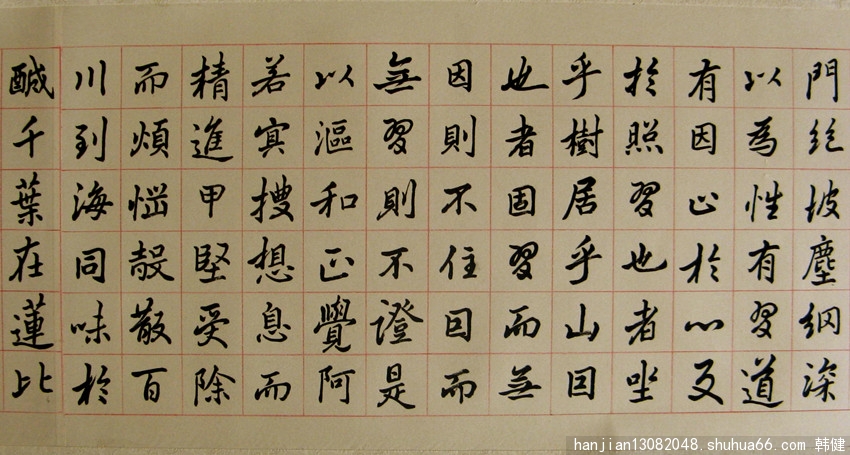 門絕坡塵網深
以為性有習道
有因止於心及
於照習也者坐
乎樹居乎山囙
也者固習而無
因則不住囙而
無習則不證是
以漚和正覺阿
若冥搜想息而
精進甲堅受除
而煩惱殼散百
川到海同味於
醎千葉在蓮比
hanjian13082048.shuhua66.com 韩健